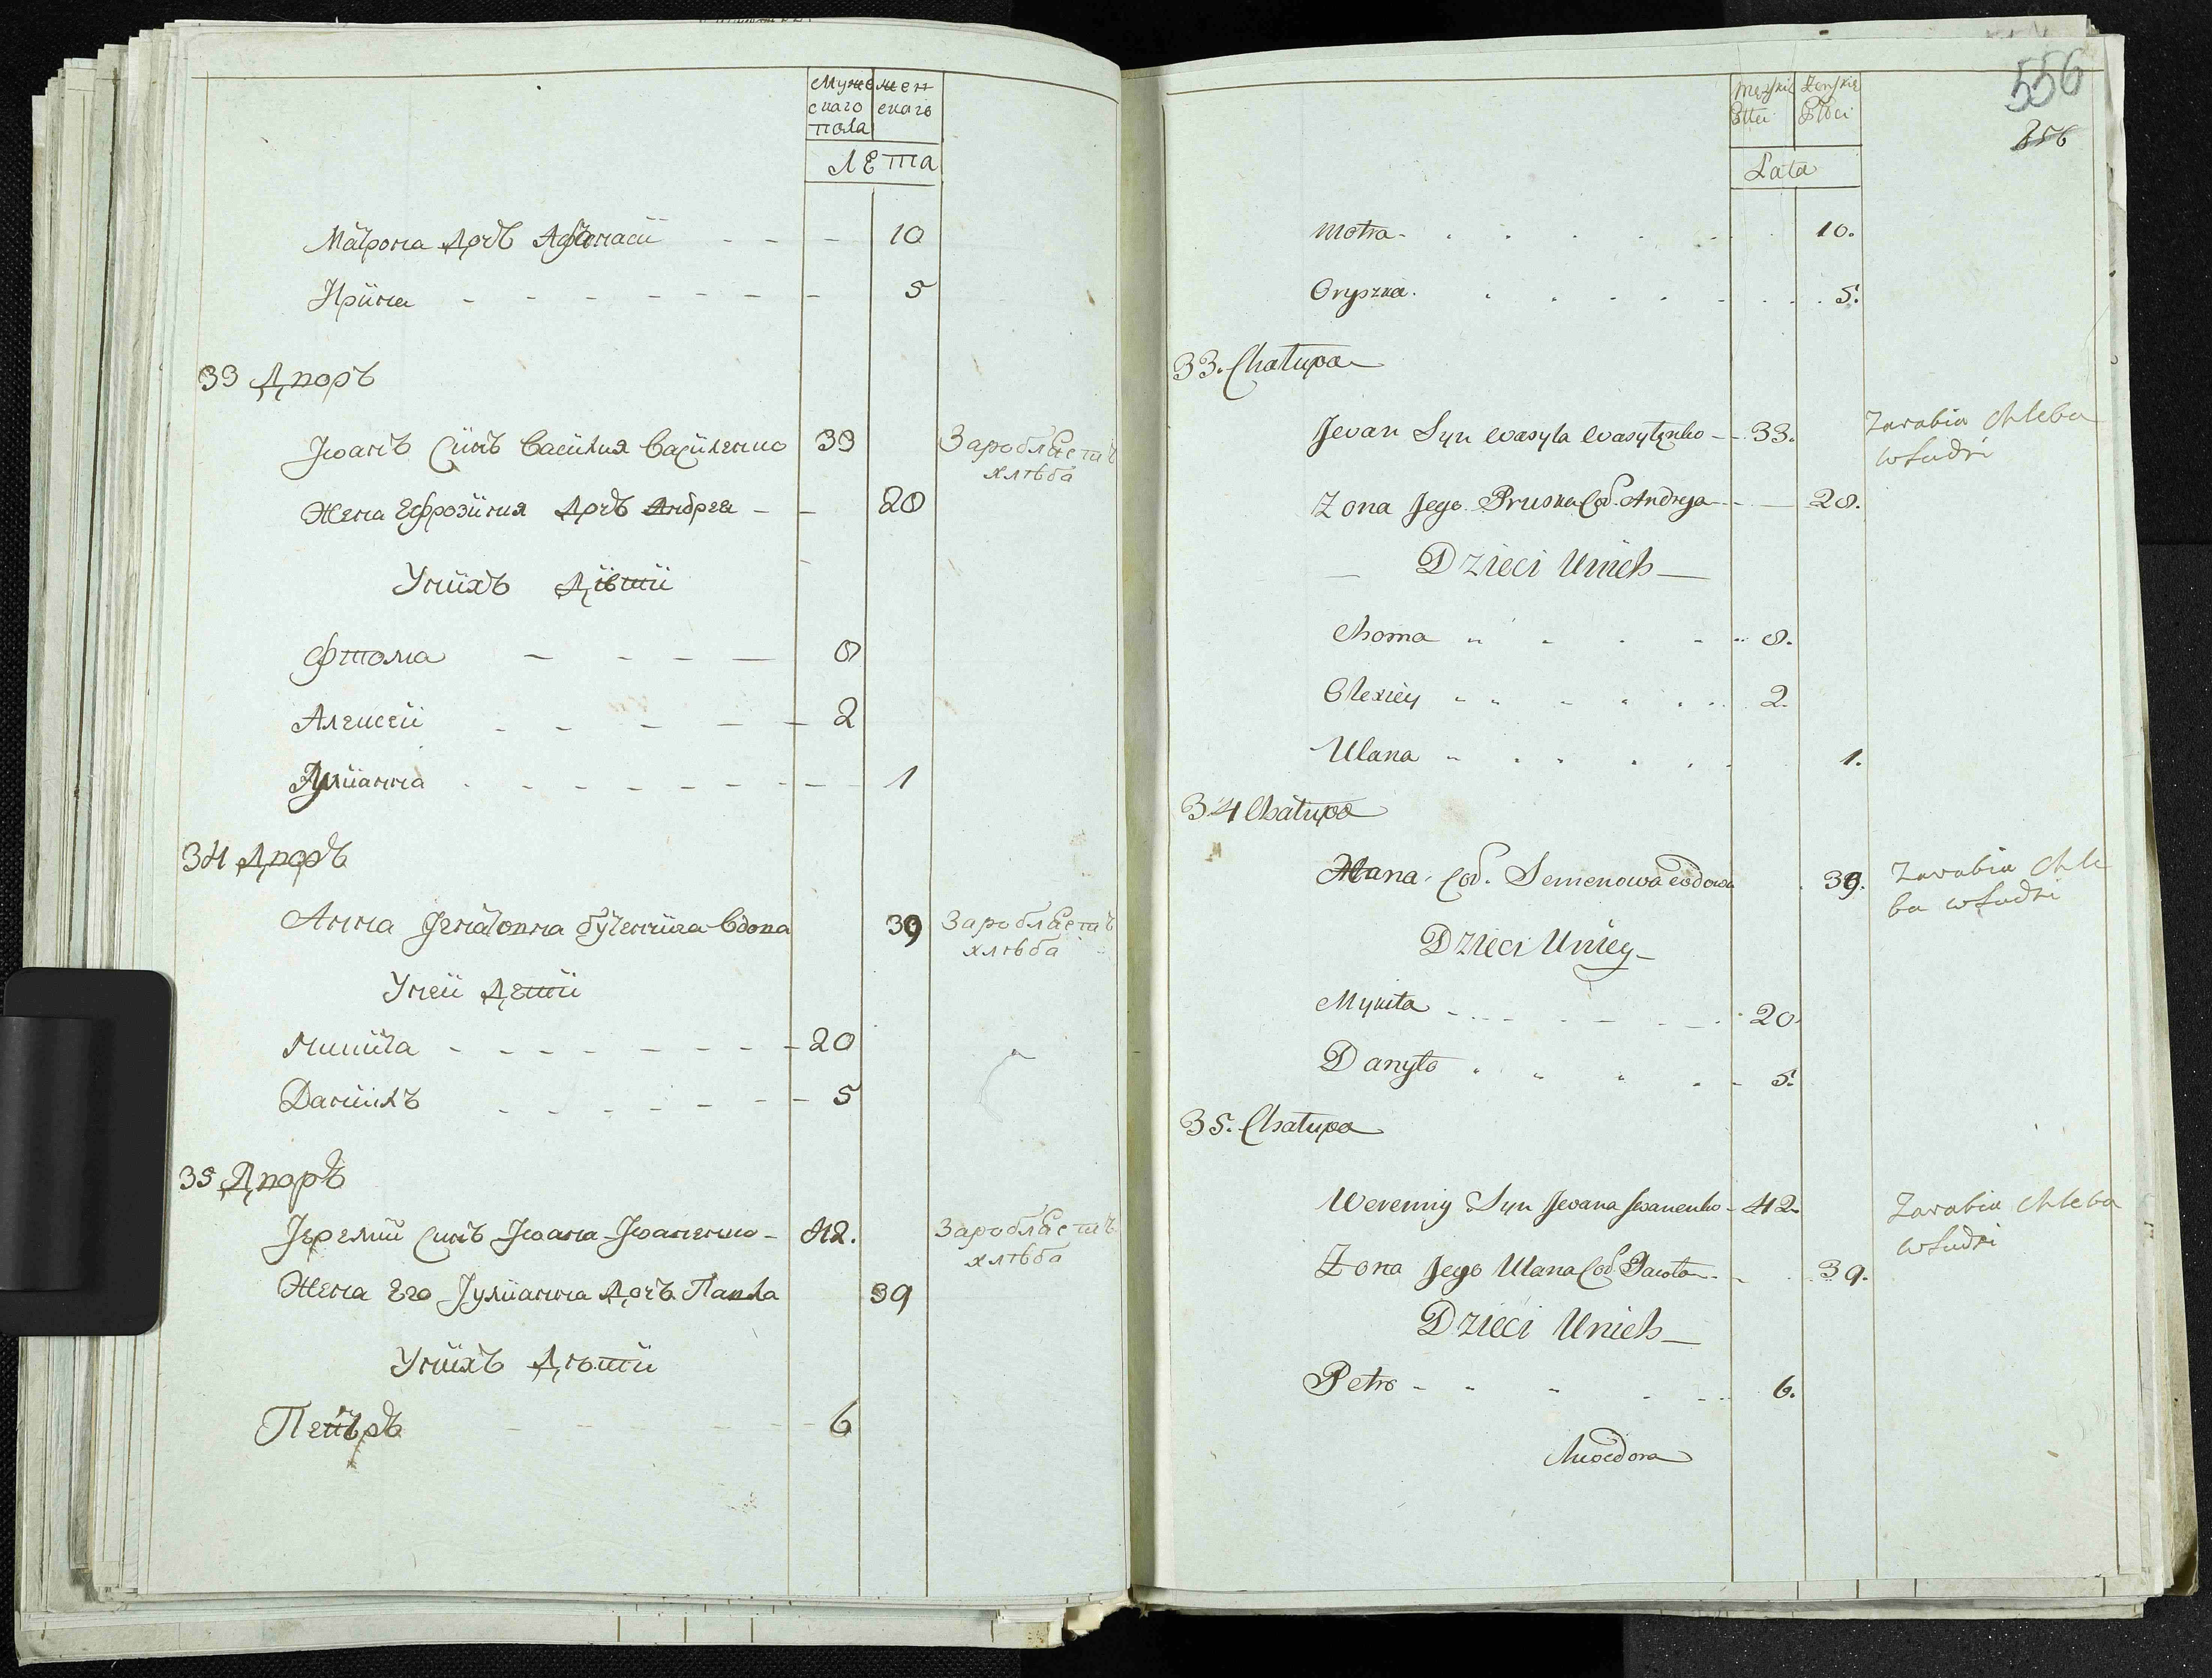 Мужескаго пола
женскаго
ЛЕта
Матрона дочь Афанасіи 10
Іріина 5
33 Дворъ
Іоанъ Синъ Василия Василенко 33 Заробляетъ
хлѣба
Жена Ефрозиния дочь Андрея 28
Унихъ Дѣти
Фтома 8
Алексеи 2
Иулианна 1
34 Дворъ
Анна Вдова 39 Заробляетъ
хлѣба
Уней Дети
Никита 20
Данiилъ 5
35 Дворъ
Іеремии Синъ Іоана Іоаненко 42. Заробляетъ
хлѣба
Жена Его Іулианна дочь Павла 39
Унихъ Дѣти
Петръ 6
556
256
Męzskiey Płci
Żenskiey Płci
Lata
Motra 10.
Oryszka 5.
33. Chałupa
Jwan Syn Wasyla Wasylenko 33. Zarabia chleba
w ludzi
Zona Jego Pruska Cor. Andreja 28.
Dzieci Unich
Choma 8.
Olexiey 2.
Ulana 1.
34 Chałupa
Hana Cor. Semenowa wdowa 39. Zarabia chle
ba w ludzi
Dzieci Uniey
Mykita 20.
Danyło 5.
35. Chałupa
Weremiy Syn Jwana Jwanenko 42. Zarabia chleba
w ludzi
Zona Jego Ulana Cor. Pawła 39.
Dzieci Unich
Petro 6.
Chwedora